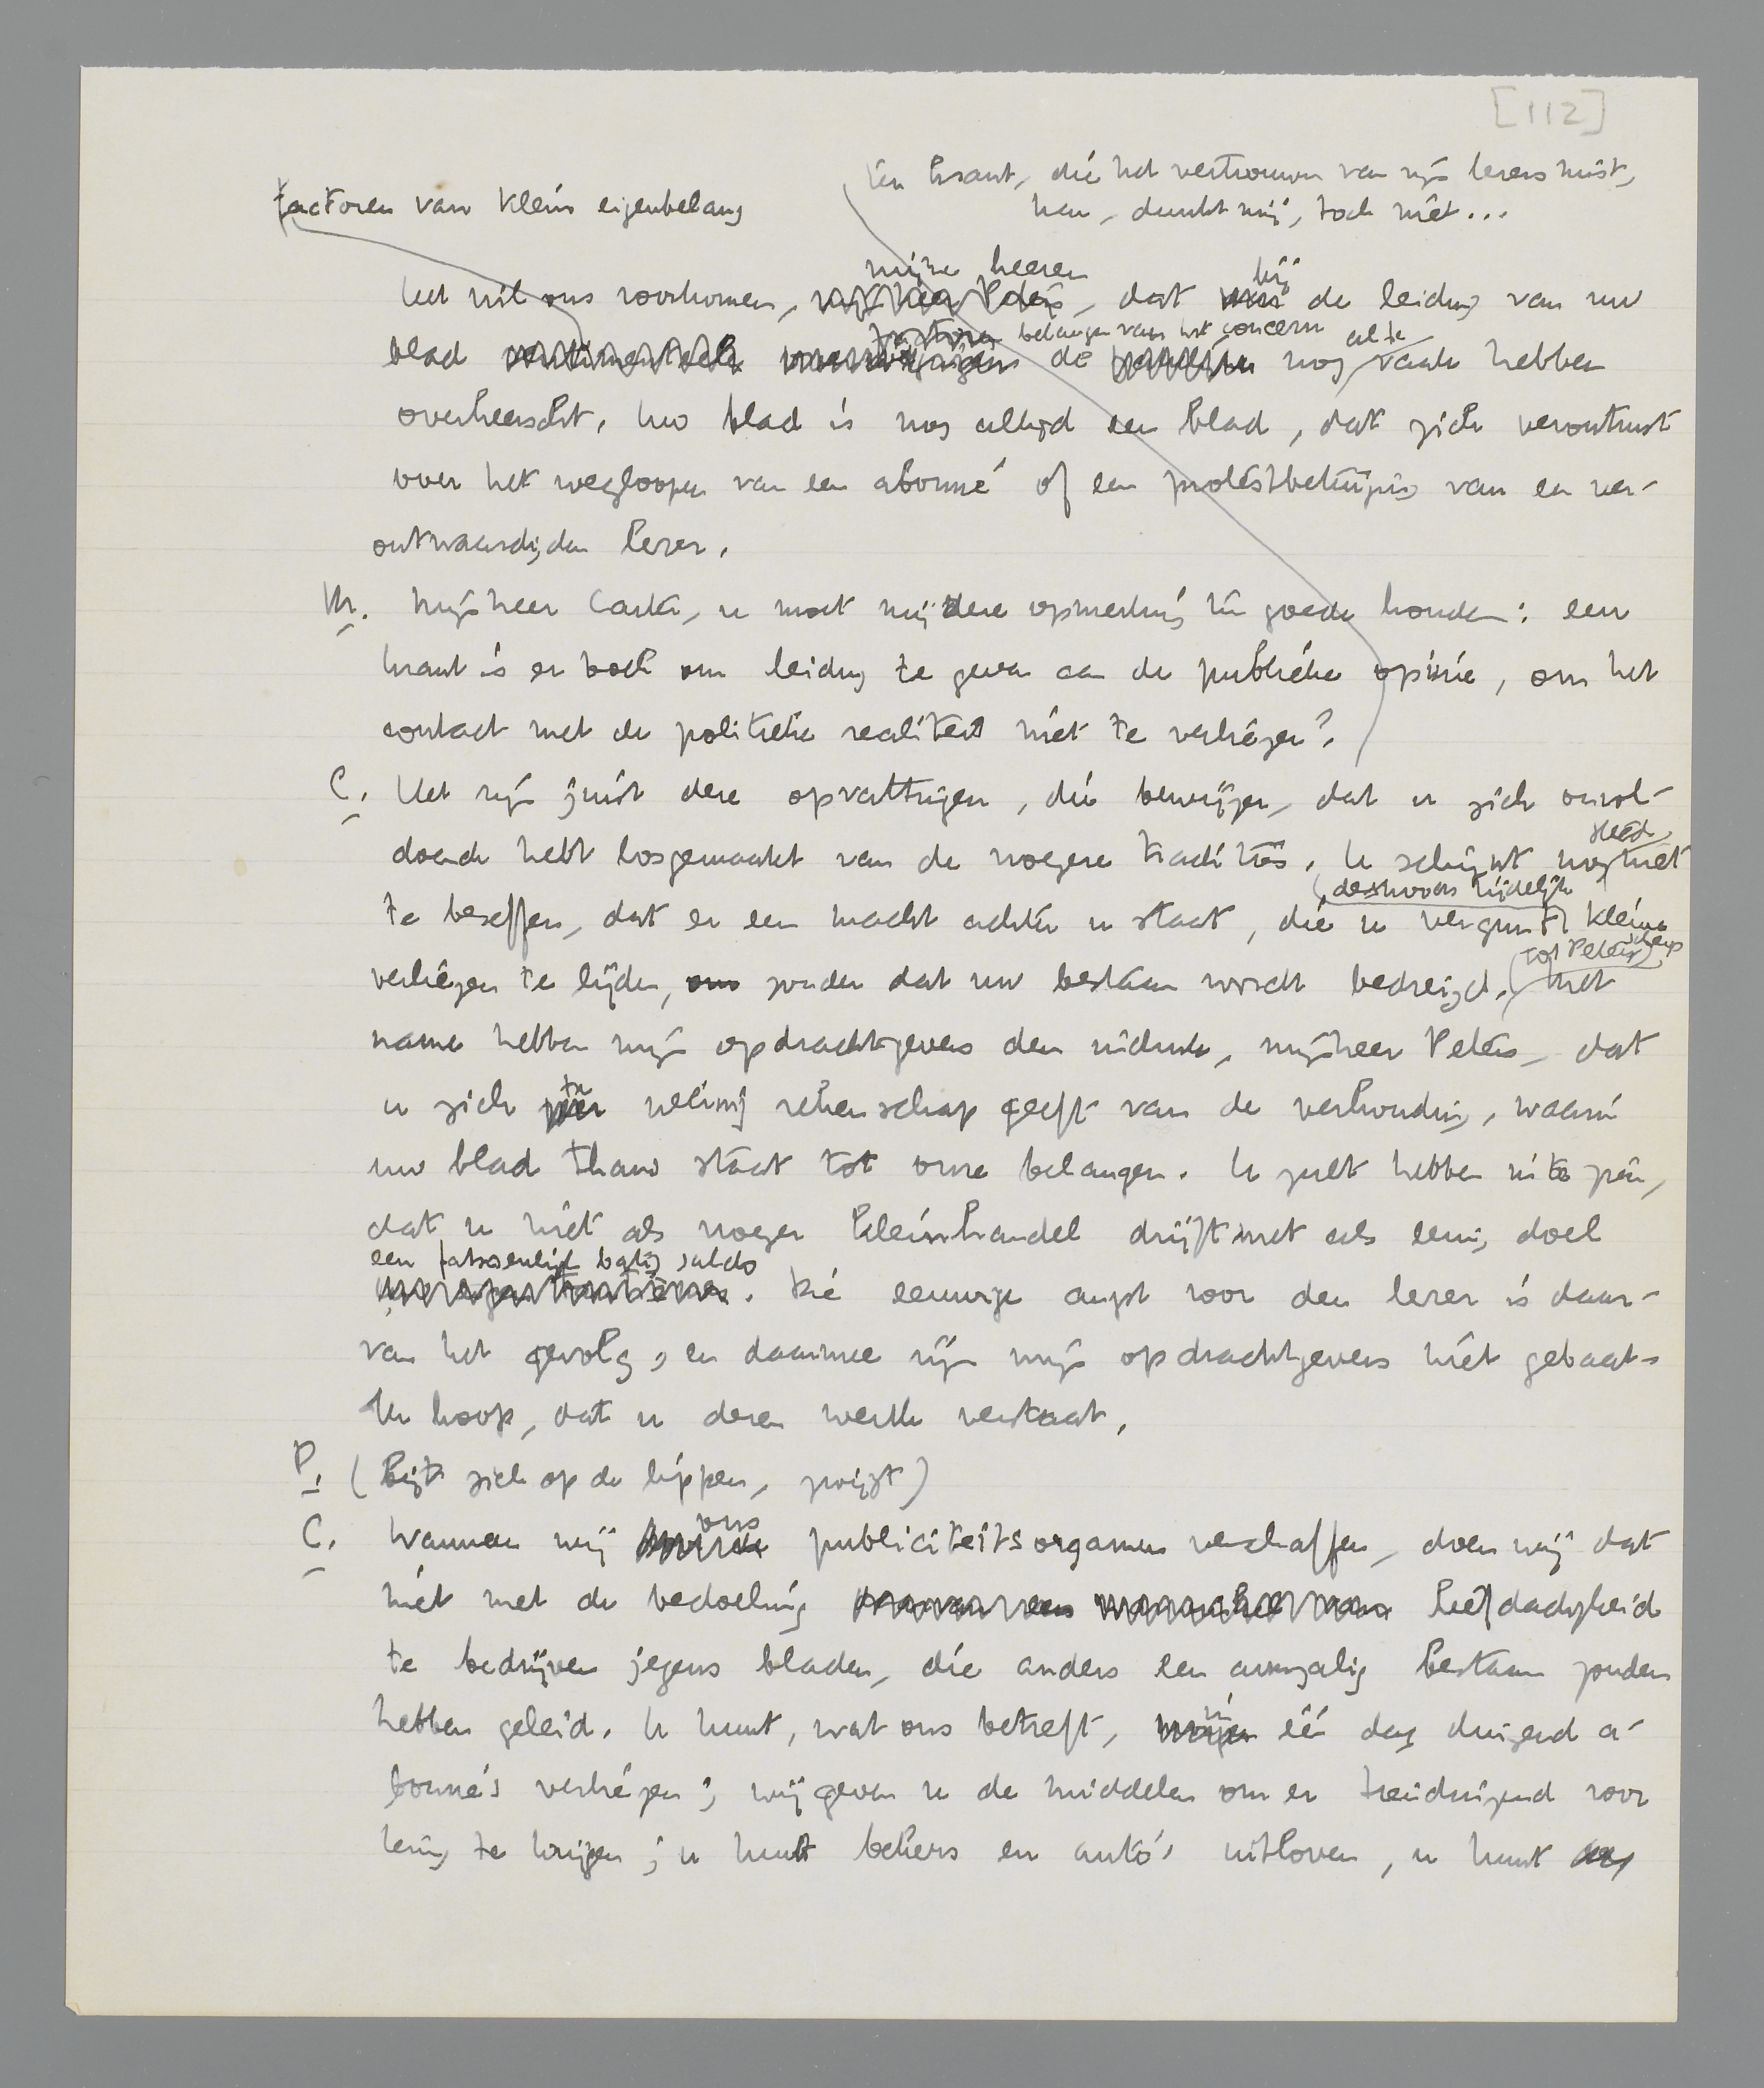 [112]
Een krant, die het vertrouwen van zijn lezers mist,
kan, dunkt mij, toch niet...
factoren van klein eigenbelang
mijne heeren bij
Het wil ons voorkomen, mijnheer Peters, dat van de leiding van uw
factoren belangen van het concern al te
blad sentimenteele overwegingen de nog vaak hebben
overheerscht. Uw blad is nog altijd een blad, dat zich verontrust
over het wegloopen van een abonné of een protestbetuiging van een ver-
ontwaardigden lezer.
M. Mijnheer Carter, u moet mij deze opmerking ten goede houden: een
krant is er toch om leiding te geven aan de publieke opinie, om het
contact met de politieke realiteit niet te verliezen?
C. Het zijn juist deze opvattingen, die bewijzen, dat u zich onvol-
doende hebt losgemaakt van de vroegere tradities. U schijnt nog steeds niet
te beseffen, dat er een macht achter u staat, die u vergunt (desnoods tijdelijk) kleine
verliezen te lijden, om zonder dat uw bestaan wordt bedreigd. (tot Peters, scherp) Met
name hebben mijn opdrachtgevers den indruk, mijnheer Peters, dat
u zich te weinig rekenschap geeft van de verhouding, waarin
uw blad thans staat tot onze belangen. U zult hebben in te zien,
dat u niet als vroeger kleinhandel drijft met als eenig doel
een fatsoenlijk batig saldo
. Die eeuwige angst voor den lezer is daar-
van het gevolg, en daarmee zijn mijn opdrachtgevers niet gebaat.
Ik hoop, dat u dezen wenk verstaat.
P. (bijt zich op de lippen, zwijgt)
C. Wanneer wij ons publiciteitsorganen verschaffen, doen wij dat
niet met de bedoeling liefdadigheid
te bedrijven jegens bladen, die anders een armzalig bestaan zouden
hebben geleid. U kunt, wat ons betreft, in één dag duizend a-
bonné's verliezen; wij geven u de middelen om er tienduizend voor
terug te krijgen; u kunt bekers en auto's uitloven, u kunt